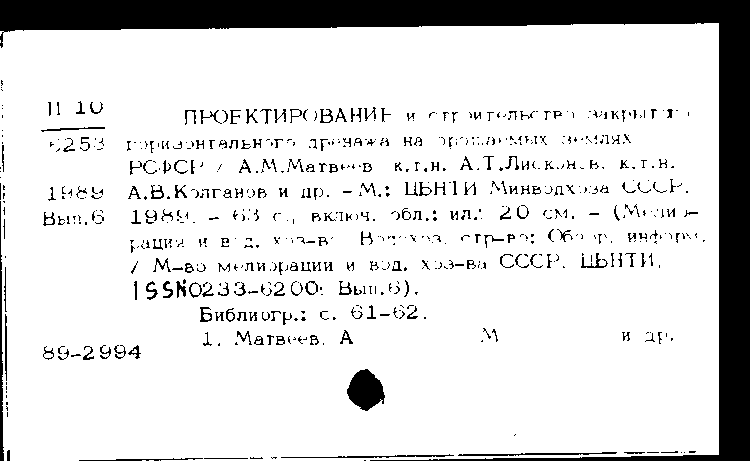 П 10
ПРОЕКТИРОВАНИЕ и строительство закрытого
6253 горизонтального дренажа на орошаемых землях
РСФСР / А.М.Матвеев, к.т.н. А.Т.Лисконов, к.т.н.
1989 А.В.Колганов и др. - М.: ЦБНТИ Минводхоза СССР,
Вып.6 1989. - 63 с., включ. обл.: ил.; 20 см. - (Мелио-
рация и вод. хоз-во. Водохоз. стр-во: Обзор. информ.
/ М-во мелиорации и вод. хоз-ва СССР, ЦБНТИ,
ISSN0233-6200; Вып.6).
Библиогр.: с. 61-62.
1. Матвеев, А М и др.
89-2994